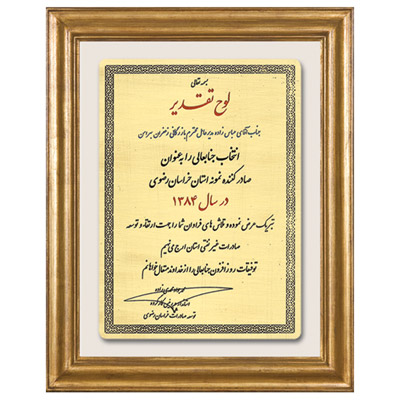 بسمه تعالی
لوح تقدیر
جناب آقای عباس زاده مدیرعامل محترم بازرگانی زعفران بهرمن
انتخاب جنابعالی را به عنوان
صادر کننده نمونه استان خراسان رضوی
در سال ۱۳۸۴
تبریک عرض نموده و تلاش های فراوان شما را جهت ارتقاء و توسعه
صادرات غیر نفتی استان ارج می نهیم
توفیقات روز افزون جنابعالی را از خداوند متعال خواهانم
توسعه صادرات خراسان رضوی